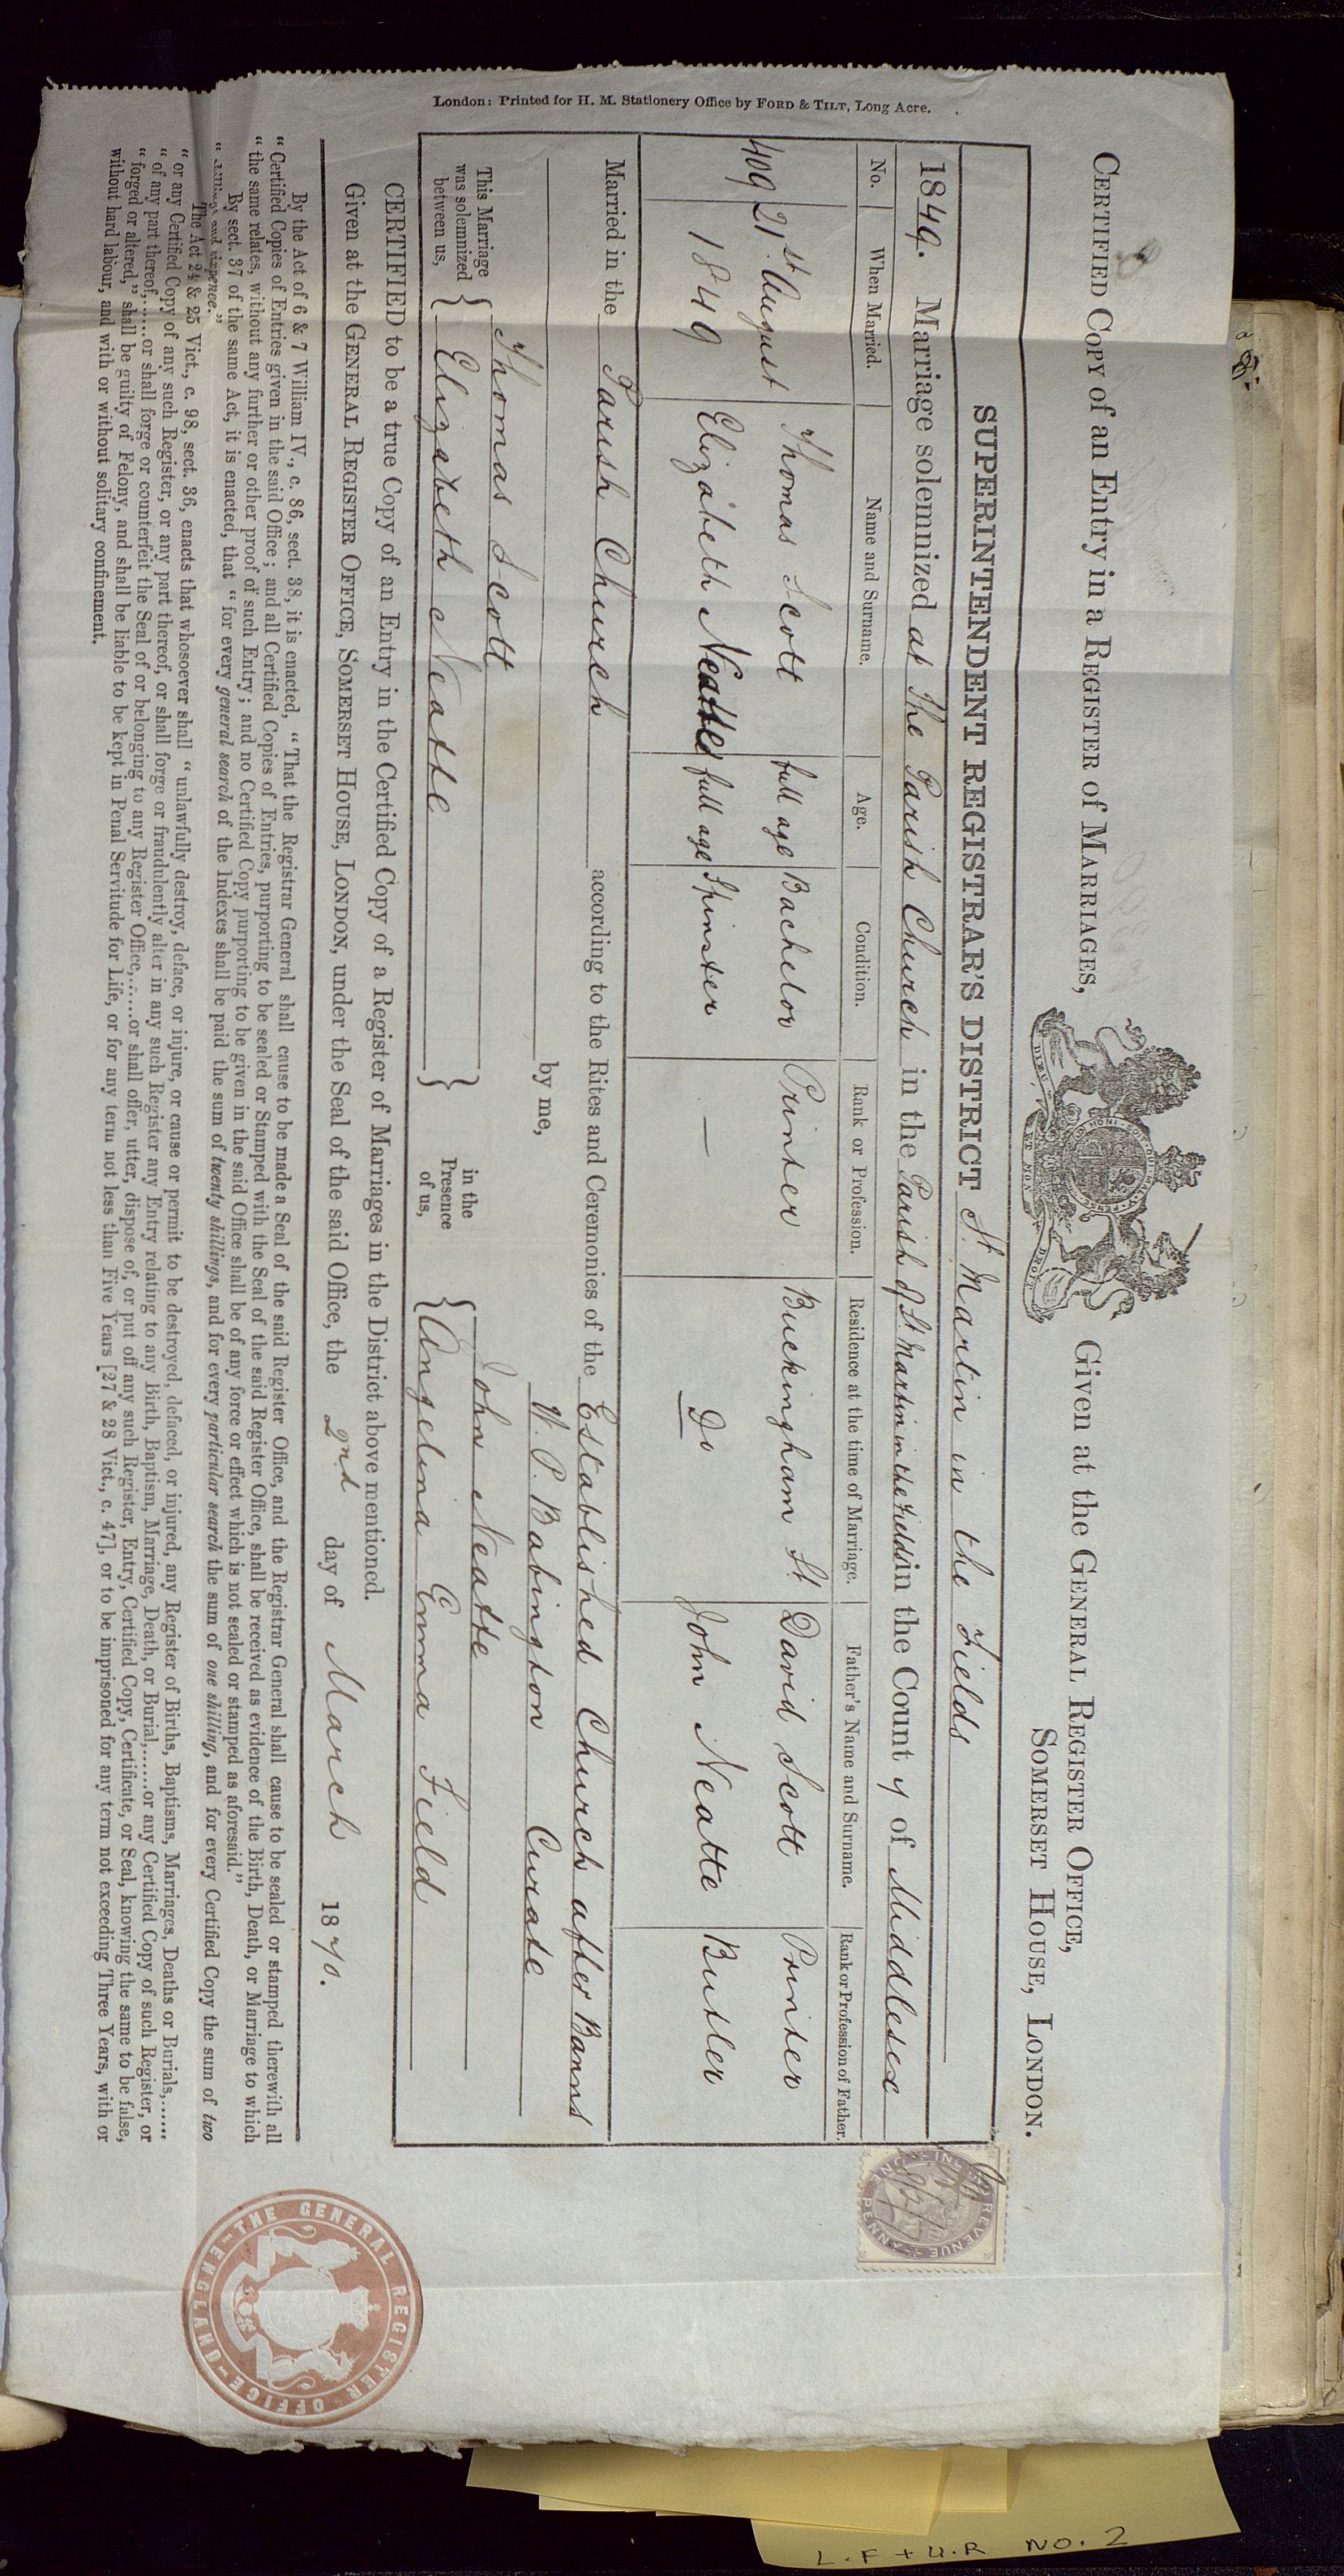 CERTIFIED COPY of an Entry in a REGISTER of MARRIAGES,
Given at the GENERAL REGISTER OFFICE,
SOMERSET HOUSE, LONDON.
DIEU ET MON DROIT
HONI SOIT QUI MAL Y PENSE
SUPERINTENDENT REGISTRAR'S DISTRICT St. Martin in the Fields
1849. Marriage solemnized at The Parish Church in the Parish of St. Martin in the Fields in the County of Middlesex
No. When Married. Name and Surname. Age. Condition. Rank or Profession. Residence at the time of Marriage. Father's Name and Surname. Rank or Profession of Father.
409 21st. August Thomas Scott full age Bachelor Printer Buckingham St David Scott Printer
1849 Elizabeth Neatte full age Spinster — Do John Neatte Butler
Married in the Parish Church according to the Rites and Ceremonies of the Established Church after Banns
by me, W. P. Babington Curate
This Marriage was solemnized between us, { Thomas Scott
Elizabeth Neatte } in the Presence of us, { John Neatte
Angelina Emma Field
CERTIFIED to be a true Copy of an Entry in the Certified Copy of a Register of Marriages in the District above mentioned.
Given at the GENERAL REGISTER OFFICE, SOMERSET HOUSE, LONDON, under the Seal of the said Office, the 2nd day of March 1870.
By the Act of 6 & 7 William IV., c. 86, sect. 38, it is enacted, “That the Registrar General shall cause to be made a Seal of the said Register Office, and the Registrar General shall cause to be sealed or stamped therewith all
“Certified Copies of Entries given in the said Office; and all Certified Copies of Entries, purporting to be sealed or Stamped with the Seal of the said Register Office, shall be received as evidence of the Birth, Death, or Marriage to which
“the same relates, without any further or other proof of such Entry; and no Certified Copy purporting to be given in the said Office shall be of any force or effect which is not sealed or stamped as aforesaid.”
By sect. 37 of the same Act, it is enacted, that “for every general search of the Indexes shall be paid the sum of twenty shillings, and for every particular search the sum of one shilling, and for every Certified Copy the sum of two
“shillings and sixpence.”
The Act 24 & 25 Vict., c. 98, sect. 36, enacts that whosoever shall “unlawfully destroy, deface, or injure, or cause or permit to be destroyed, defaced, or injured, any Register of Births, Baptisms, Marriages, Deaths or Burials,......
“or any Certified Copy of any such Register, or any part thereof, or shall forge or fraudulently alter in any such Register any Entry relating to any Birth, Baptism, Marriage, Death, or Burial,......or any Certified Copy of such Register, or
“of any part thereof,......or shall forge or counterfeit the Seal of or belonging to any Register Office,......or shall offer, utter, dispose of, or put off any such Register, Entry, Certified Copy, Certificate, or Seal, knowing the same to be false,
“forged or altered,” shall be guilty of Felony, and shall be liable to be kept in Penal Servitude for Life, or for any term not less than Five Years [27 & 28 Vict., c. 47], or to be imprisoned for any term not exceeding Three Years, with or
without hard labour, and with or without solitary confinement.
London: Printed for H. M. Stationery Office by FORD & TILT, Long Acre.
INLAND REVENUE ONE PENNY
THE GENERAL REGISTER OFFICE ENGLAND
L.F + U.R NO. 2